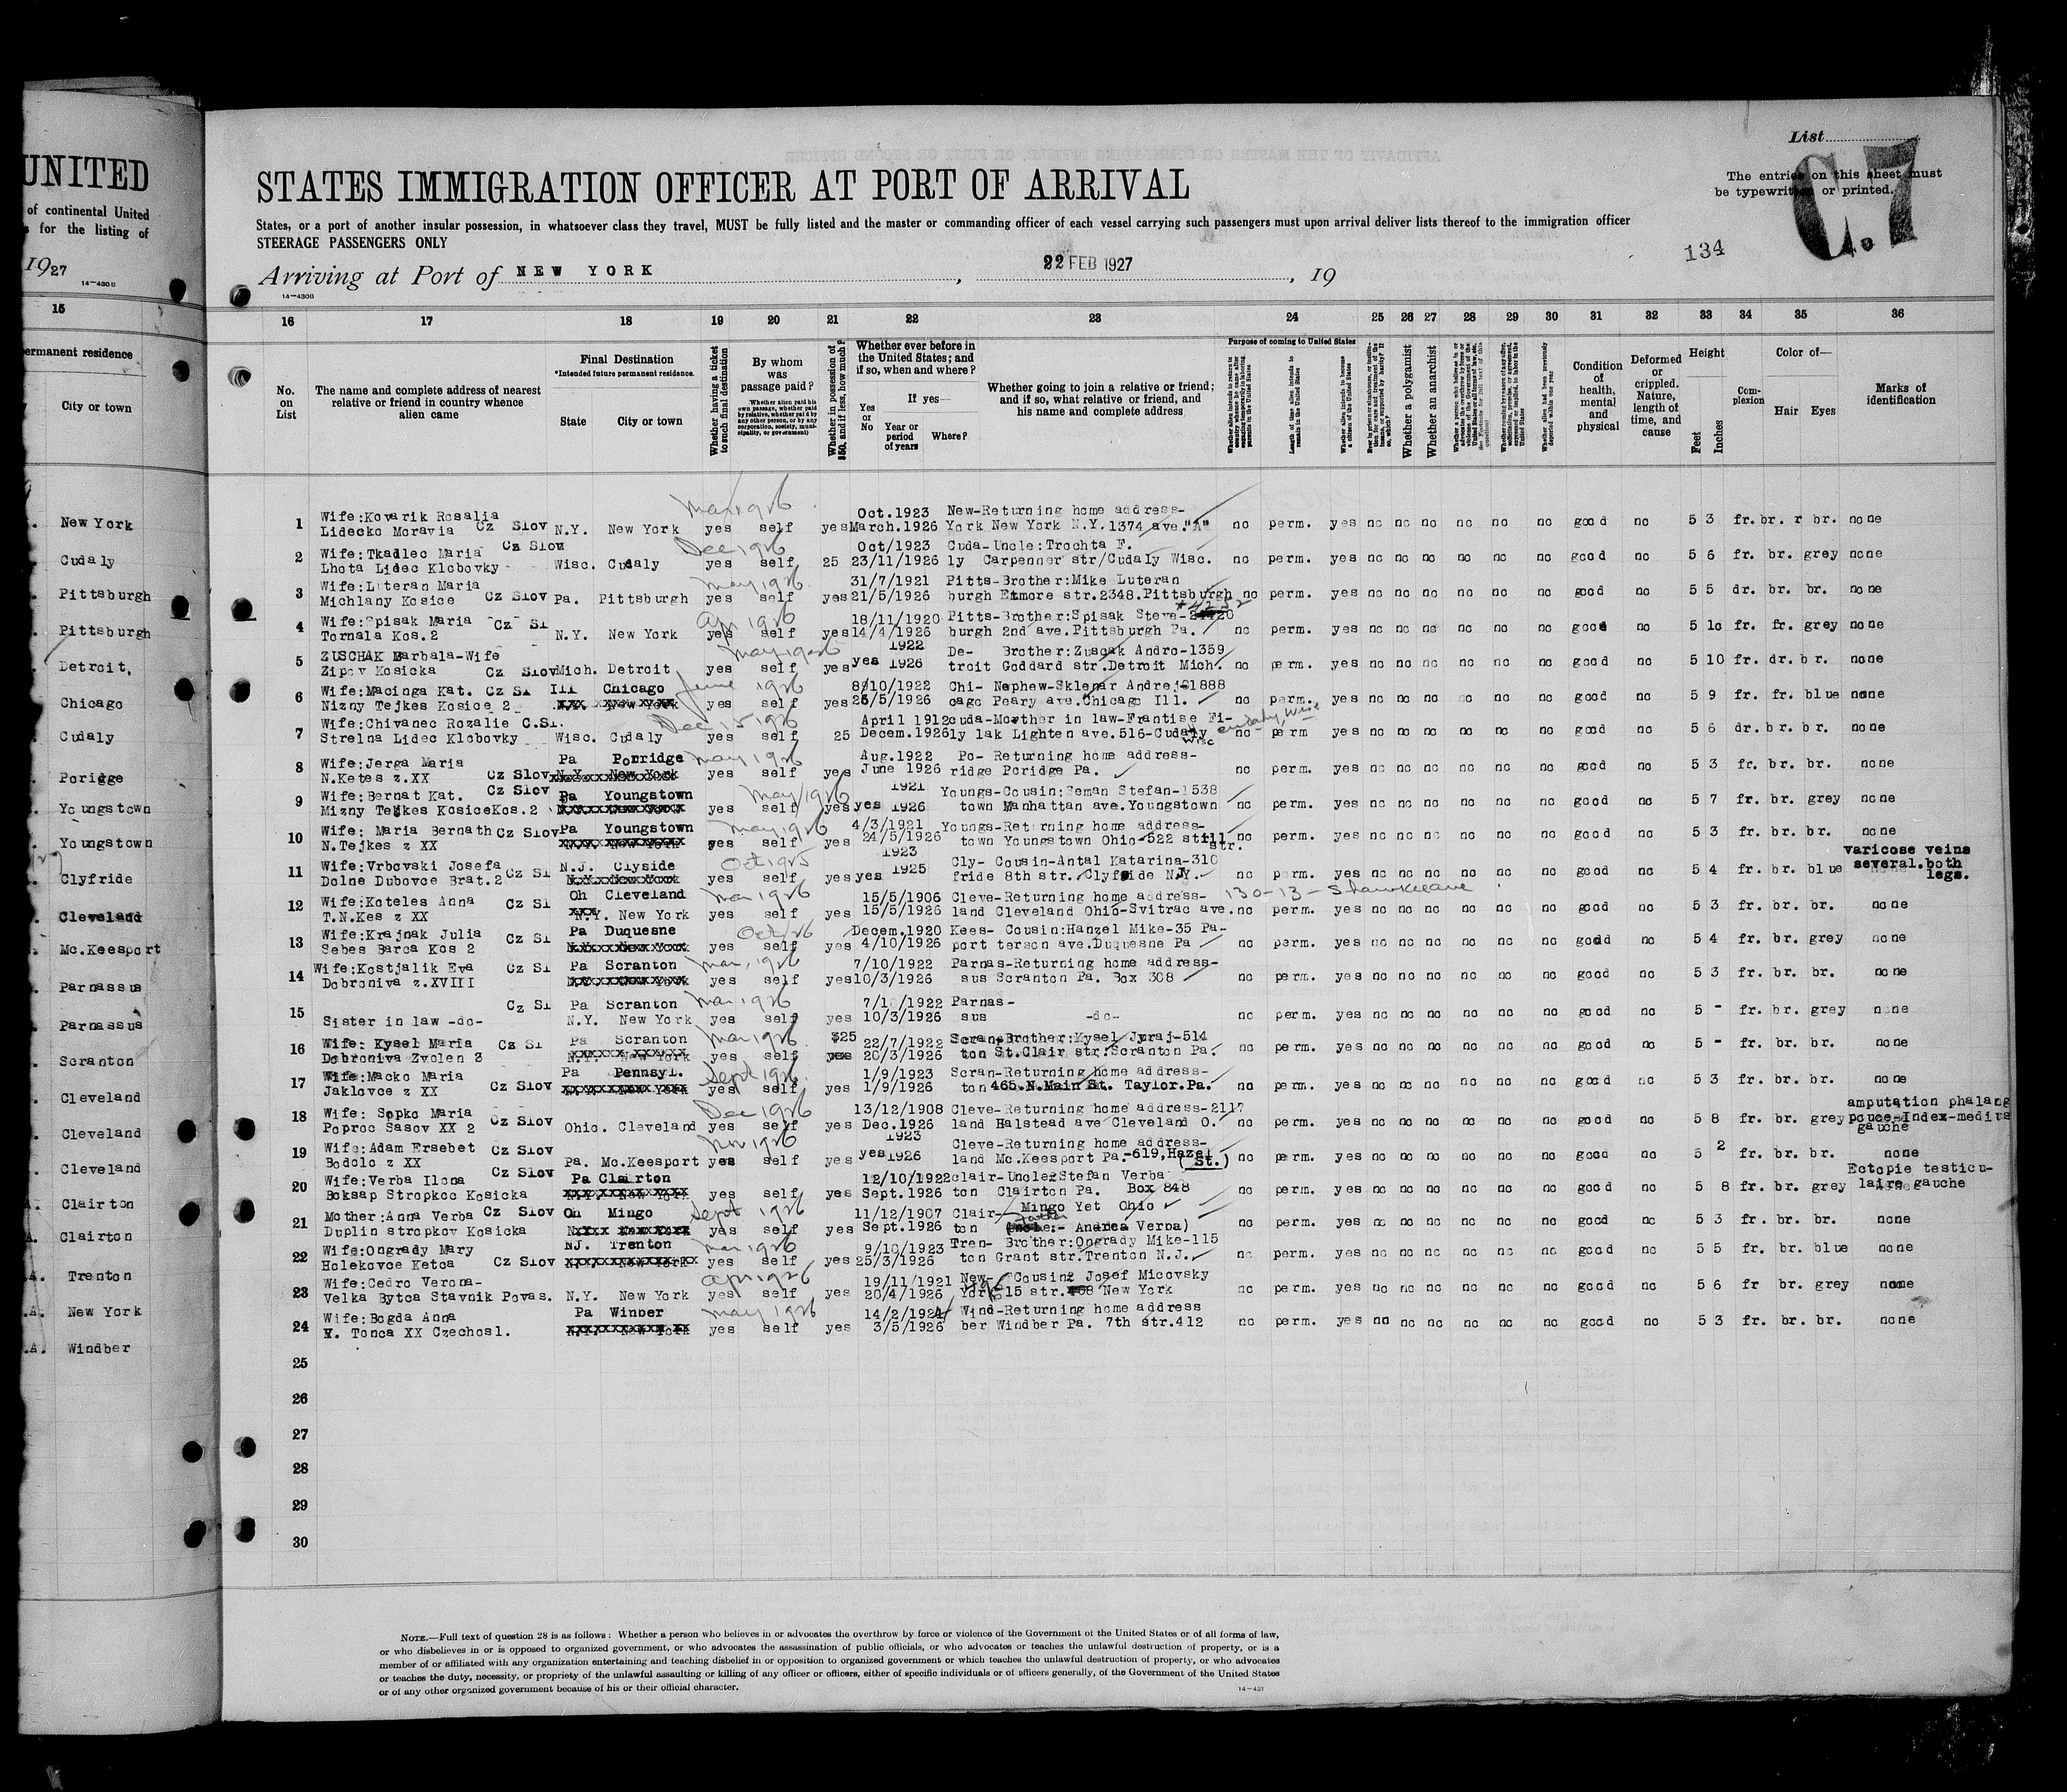 UNITED
of continental United
for the listing of
1927
14-430B
15
permanent residence
City or town
New York
Cudaly
Pittsburgh
Pittsburgh
Detroit,
Chicago
Cudaly
Poridge
Youngstown
Youngstown
Clyfride
Cleveland
Mc.Keesport
Parnassus
Parnassus
Scranton
Cleveland
Cleveland
Cleveland
Clairton
Clairton
Trenton
New York
Windber
List
C.7
The entries on this sheet must
be typewritten or printed.
134
STATES IMMIGRATION OFFICER AT PORT OF ARRIVAL
States, or a port of another insular possession, in whatsoever class they travel, MUST be fully listed and the master or commanding officer of each vessel carrying such passengers must upon arrival deliver lists thereof to the immigration officer
STEERAGE PASSENGERS ONLY
Arriving at Port of NEW YORK, 22 FEB 1927, 19
14-430B
16 17 18 19 20 21 22 23 24 25 26 27 28 29 30 31 32 33 34 35 36
No. on List
The name and complete address of nearest relative or friend in country whence alien came
Final Destination
*Intended future permanent residence.
State City or town
Whether having a ticket to such final destination
By whom was passage paid?
Whether in possession of $50, and if less, how much?
Whether ever before in the United States; and if so, when and where?
Yes or No
If yes—
Year or period of years
Where?
Whether going to join a relative or friend; and if so, what relative or friend, and his name and complete address
Purpose of coming to United States
Whether a polygamist
Whether an anarchist
Condition of health, mental and physical
Deformed or crippled. Nature, length of time, and cause
Height
Feet Inches
Complexion
Color of—
Hair Eyes
Marks of identification
Mar 1926
Wife:Kovarik Rosalia Oct.1923 New-Returning home address-
1 Lidecko Moravia Cz Slov N.Y. New York yes self yes March.1926 York New York N.Y.1374 ave."A" no perm. yes no no no no no no good no 5 3 fr. br. r br. none
Wife:Tkadlec Maria Cz Slov Dec 1926 Oct/1923 Cuda-Uncle:Trochta F.
2 Lhota Lidec Klobovky Wisc. Cudaly yes self 25 23/11/1926 ly Carpenner str/Cudaly Wisc. no perm. yes no no no no no no good no 5 6 fr. br. grey none
Wife:Luteran Maria May 1926 31/7/1921 Pitts-Brother:Mike Luteran
3 Michlany Kosice Cz Slov Pa. Pittsburgh yes self yes 21/5/1926 burgh Etmore str.2348.Pittsburgh no perm. yes no no no no no no good no 5 5 dr. br. br. none
Wife:Spisak Maria Cz Sl Apr 1926 18/11/1920 Pitts-Brother:Spisak Steve-
4 Tornala Kos.2 N.Y. New York yes self yes 14/4/1926 burgh 2nd ave.Pittsburgh Pa. no perm. yes no no no no no no good no 5 10 fr. fr. grey none
ZUSCHAK Barbala-Wife May 1926 1922 De- Brother:Zuscak Andro-1359
5 Zipov Kosicka Cz Slov Mich. Detroit yes self yes yes 1926 troit Goddard str.Detroit Mich. no perm. yes no no no no no no good no 5 10 fr. dr. br. none
Wife:Macinga Kat. Cz Sl Ill Chicago June 1926 8/10/1922 Chi- Nephew-Sklenar Andrej-1888
6 Nizny Tejkes Kosice 2 yes self yes 26/5/1926 cago Peary ave.Chicago Ill. no perm. yes no no no no no no good no 5 9 fr. fr. blue none
Wife:Chivanec Rozalie C.Sl. Dec 15 1926 April 1912 cuda-Mother in law-Frantise Fi-
7 Strelna Lidec Klobovky Wisc. Cudaly yes self 25 Decem.1926 ly lak Lighten ave.516-Cudahy Wisc Cudahy, Wisc no perm yes no no no no no no good no 5 6 dr. br. br. none
Wife:Jerga Maria Pa Porridge May 1926 Aug.1922 Po- Returning home address-
8 N.Ketes z.XX Cz Slov yes self yes June 1926 ridge Poridge Pa. no perm. yes no no no no no no good no 5 3 fr. br. br. none
Wife:Bernat Kat. Cz Slov Pa Youngstown May 1926 1921 Youngs-Cousin:Seman Stefan-1538
9 Mizny Tejkes Kosice Kos.2 yes self yes yes 1926 town Manhattan ave.Youngstown no perm. yes no no no no no no good no 5 7 fr. br. grey none
Wife: Maria Bernath Cz Slov Pa Youngstown May 1926 4/3/1921 Youngs-Returning home address-
10 N.Tejkes z XX yes self yes 24/5/1926 town Youngstown Ohio-522 still str. no perm. yes no no no no no no good no 5 3 fr. br. br. none
Wife:Vrbovski Josefa N.J. Clyside Oct 1925 1923 Cly- Cousin-Antal Katarina-310 varicose veins
11 Dolne Dubovce Brat.2 Cz Sl yes self yes yes 1925 fride 8th str. Clyfside N.J. no perm. yes no no no no no no good no 5 4 fr. br. blue several.both legs.
Wife:Koteles Anna Cz Sl Oh Cleveland Mar 1926 15/5/1906 Cleve-Returning home address- 130-13-
12 T.N.Kes z XX N.Y. New York yes self yes 15/5/1926 land Cleveland Ohio-Svitrac ave. no perm. yes no no no no no no good no 5 3 fr. br. br. none
Wife:Krajnak Julia Cz Sl Pa Duquesne Oct 26 Decem.1920 Kees- Cousin:Hanzel Mike-35 Pa-
13 Sebes Barca Kos 2 yes self yes 4/10/1926 port terson ave.Duquesne Pa no perm. yes no no no no no no godd no 5 4 fr. br. grey none
Wife:Kostjalik Eva Cz Sl Pa Scranton Mar, 1926 7/10/1922 Parnas-Returning home address-
14 Dobroniva z.XVIII yes self yes 10/3/1926 sus Scranton Pa. Box 308 no perm. yes no no no no no no good no 5 3 fr. br. br. none
Cz Sl Pa Scranton Mar 1926 7/10/1922 Parnas-
15 Sister in law -do- N.Y. New York yes self yes 10/3/1926 sus -do- no perm. yes no no no no no no good no 5 - fr. br. grey none
Wife: Kysel Maria Cz Sl Pa Scranton Mar 1926 $25 22/7/1922 Scran-Brother:Kysel Juraj-514
16 Dobroniva Zvolen 3 yes self 20/3/1926 ton St.Clair str.Scranton Pa. no perm. yes no no no no no no good no 5 - fr. br. br. none
Wife:Macko Maria Pa Pennsyl. Sept 1926 1/9/1923 Scran-Returning home address-
17 Jaklovce z XX Cz Slov yes self yes 1/9/1926 ton 465.N.Main St. Taylor.Pa. no perm. yes no no no no no no good no 5 3 fr. br. br. none
Wife: Sopko Maria Dec 1926 13/12/1908 Cleve-Returning home address-2117 amputation phalang
18 Poproc Sasov XX 2 Cz Slov Ohio. Cleveland yes self yes Dec.1926 land Halstead ave Cleveland O. no perm. yes no no no no no no good no 5 8 fr. br. grey pouce-Index-medius gauche
Wife:Adam Ersebet Cz Slov Nov 1926 1923 Cleve-Returning home address-
19 Bodolo z XX Pa. Mc.Keesport yes self yes yes 1926 land Mc.Keesport Pa.-619,Hazel (St.) no perm. yes no no no no no no good no 5 2 fr. br. br. none
Wife:Verba Ilona Cz Slov Pa Clairton 12/10/1922 clair-Uncle:Stefan Verba Ectopie testicu-
20 Boksap Stropkoc Kosicka yes self yes Sept.1926 ton Clairton Pa. Box 848 no perm. yes no no no no no no good no 5 8 fr. br. grey laire gauche
Mother:Anna Verba Cz Slov Oh Mingo Sept 1926 11/12/1907 Clair- Mingo Yet Ohio
21 Duplin stropkov Kosicka yes self yes Sept.1926 ton father - Andrea Verba) no perm. yes no no no no no no good no 5 3 fr. br. br. none
Wife:Ongrady Mary NJ. Trenton Mar 1926 9/10/1923 Tren- Brother:Ongrady Mike-115
22 Holekovce Ketca Cz Slov yes self yes 25/3/1926 ton Grant str.Trenton N.J. no perm. yes no no no no no no good no 5 5 fr. br. blue none
Wife:Cedro Verona- Apr 1926 19/11/1921 New- Cousin: Josef Micovsky
23 Velka Bytca Stavnik Povas. N.Y. New York yes self yes 20/4/1926 York 15 str. New York no perm. yes no no no no no no good no 5 6 fr br. grey none
Wife:Bogda Anna Pa Winber May 1926 14/2/1924 Wind-Returning home address
24 V. Tonca XX Czechosl. yes self yes 3/5/1926 ber Windber Pa. 7th str.412 no perm. yes no no no no no no good no 5 3 fr. br. br. none
25
26
27
28
29
30
NOTE.—Full text of question 28 is as follows: Whether a person who believes in or advocates the overthrow by force or violence of the Government of the United States or of all forms of law,
or who disbelieves in or is opposed to organized government, or who advocates the assassination of public officials, or who advocates or teaches the unlawful destruction of property, or is a
member of or affiliated with any organization entertaining and teaching disbelief in or opposition to organized government or which teaches the unlawful destruction of property, or who advocates
or teaches the duty, necessity, or propriety of the unlawful assaulting or killing of any officer or officers, either of specific individuals or of officers generally, of the Government of the United States
or of any other organized government because of his or their official character.
14-431